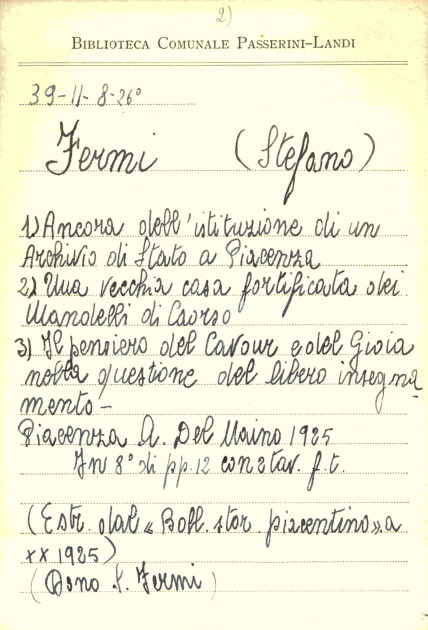 2)
BIBLIOTECA COMUNALE PASSERINI-LANDI
39-11-8-26°
Fermi (Stefano)
1) Ancora dell'istituzione di un
Archivio di Stato a Piacenza
2) Una vecchia casa fortificata dei
Mandelli di Caorso
3) Il pensiero del Cavour e del Gioia
nella questione del libero insegna
mento-
Piacenza A. Del Maino 1925
In 8° di pp. 12 con 2 tav. f. t.
(Estr. dal « Boll. stor. piacentino », a
XX 1925)
(Dono S. Fermi)